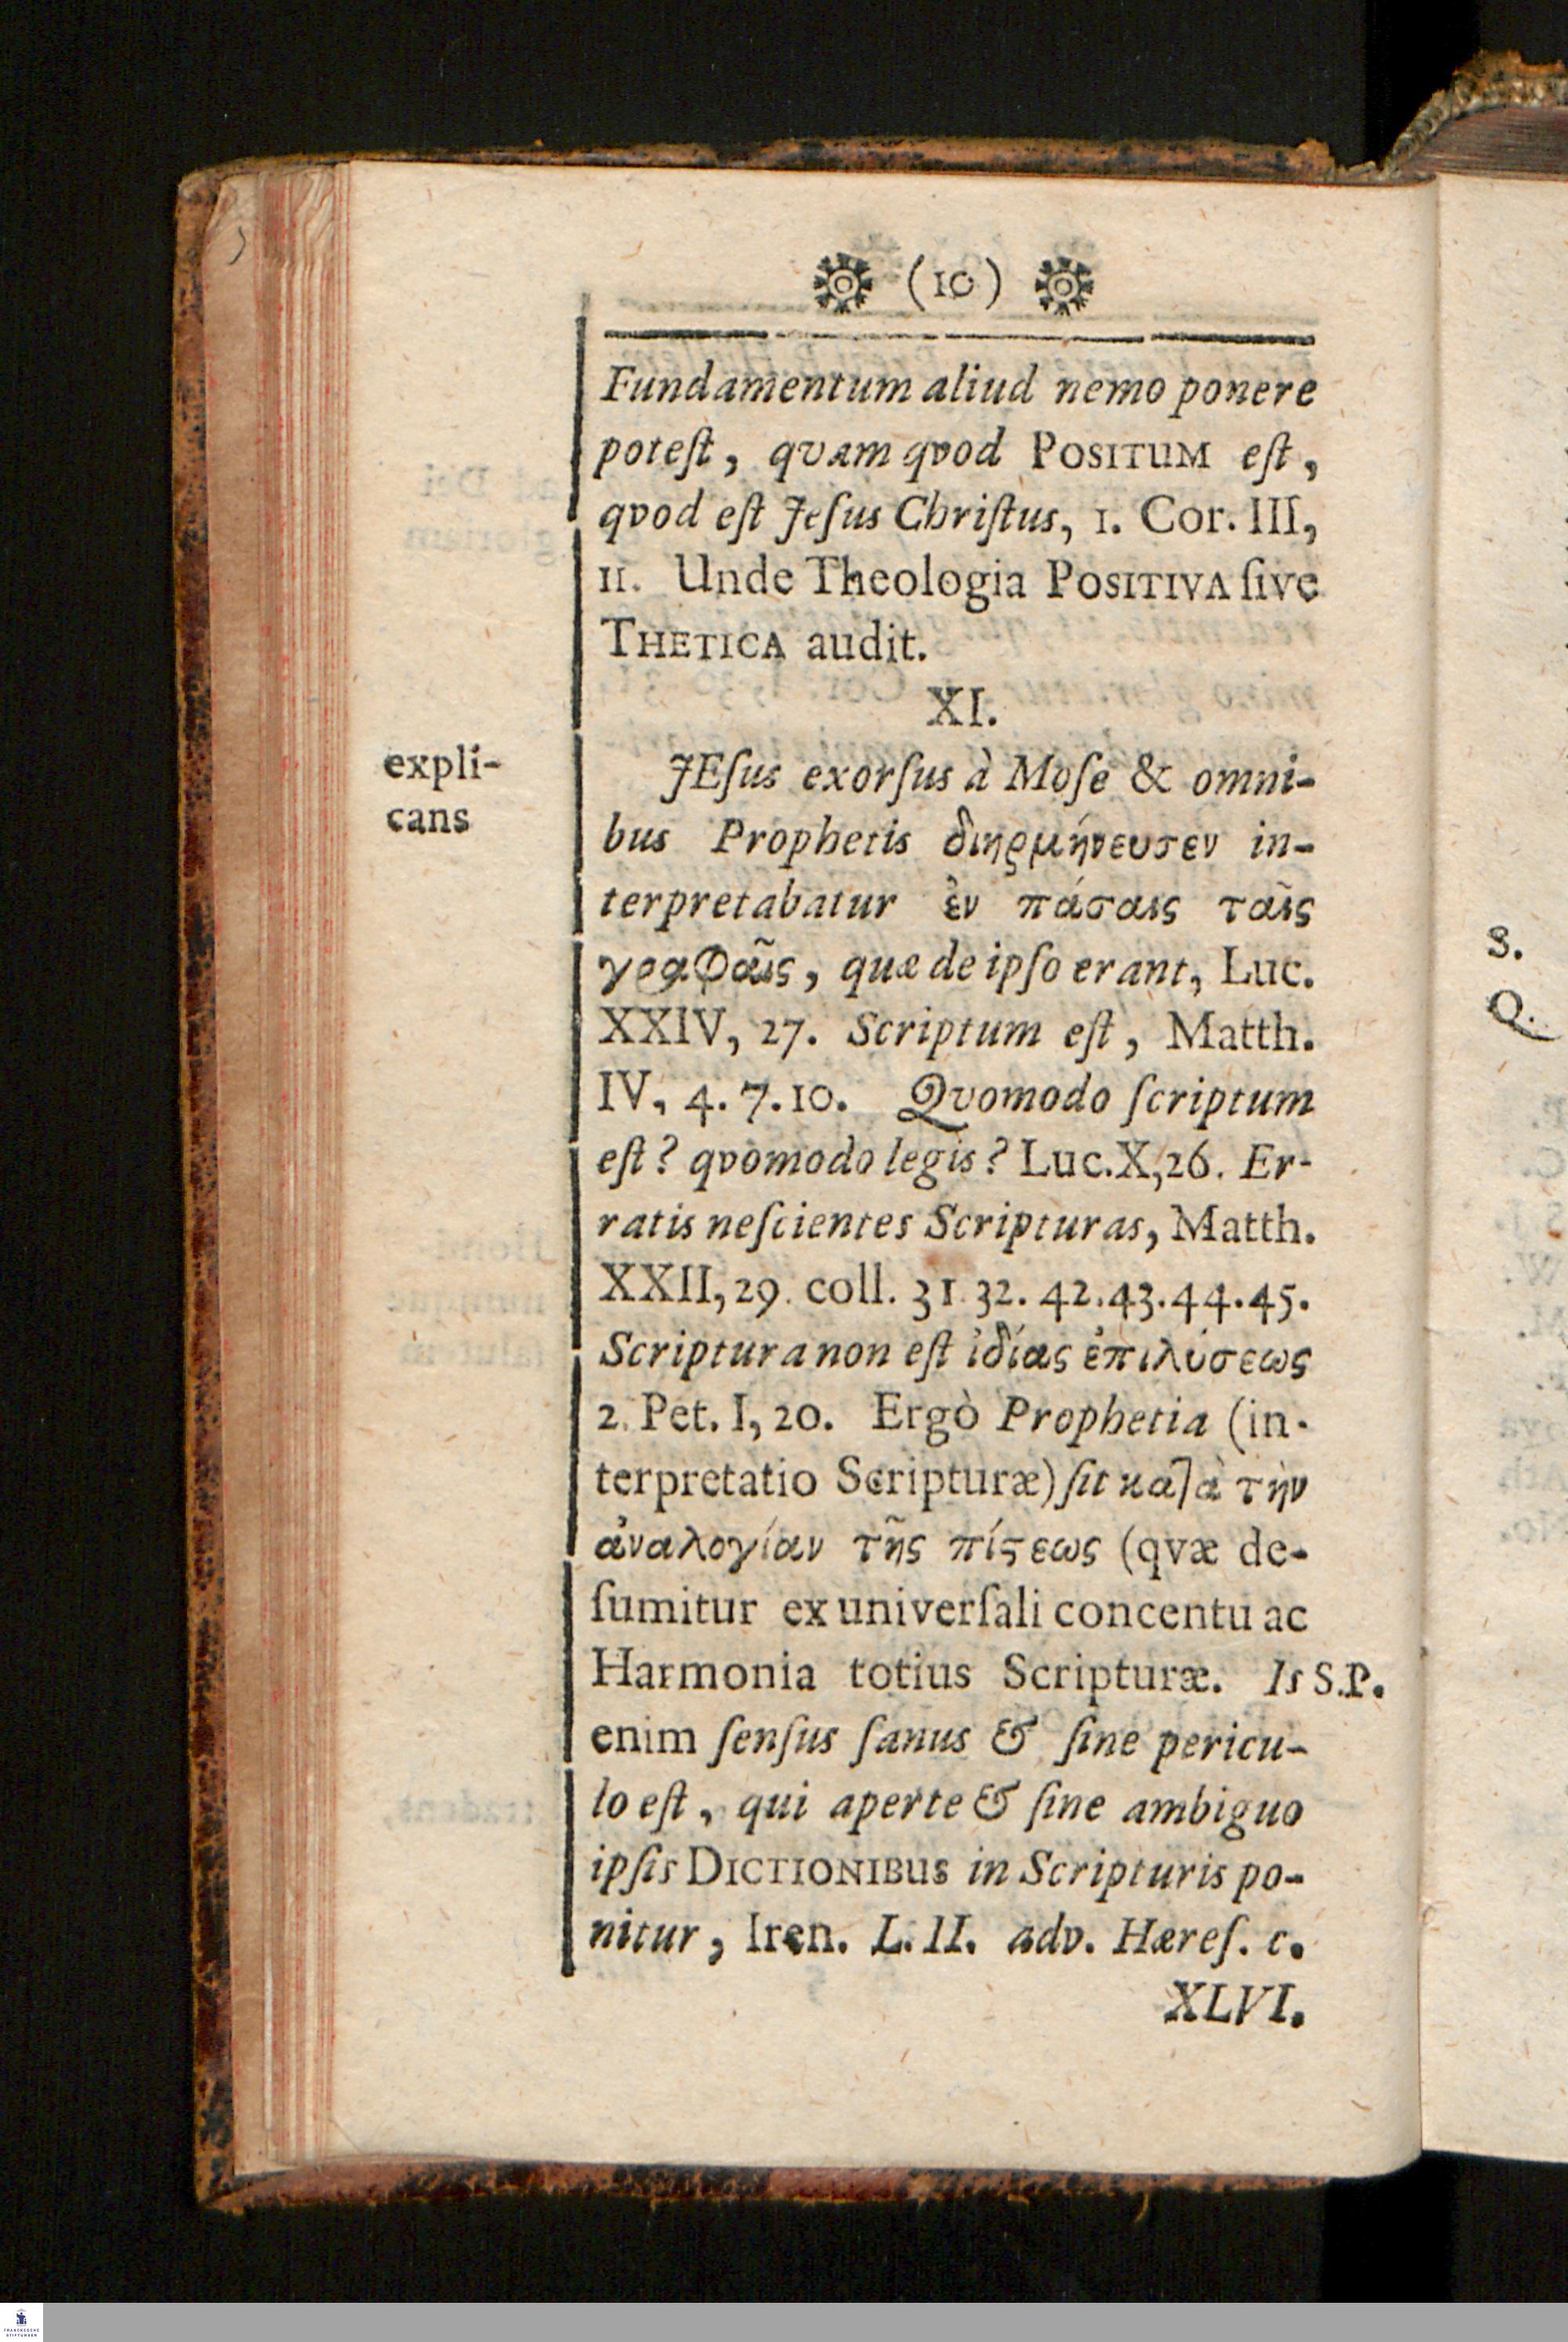 (10)
Fundamentum aliud nemo ponere
poteſt, qvam qvod POSITUM eſt,
qvod eſt Jeſus Chriſtus, 1. Cor. III,
11. Unde Theologia POSITIVA ſive
THETICA audit.
XI.
expli-
cans
JEſus exorſus à Moſe & omni-
bus Prophetis διηρμήνευσεν in-
terpretabatur ἐν πάσαις ταῖς
γραφαῖς, quæ de ipſo erant, Luc.
XXIV, 27. Scriptum eſt, Matth.
IV, 4. 7. 10. Qvomodo ſcriptum
eſt? qvomodo legis? Luc. X, 26. Er-
ratis neſcientes Scripturas, Matth.
XXII, 29. coll. 31. 32. 42. 43. 44. 45.
Scriptura non eſt ἰδίας ἐπιλύσεως
2. Pet. I, 20. Ergò Prophetia (in-
terpretatio Scripturæ) ſit κατὰ τὴν
ἀναλογίαν τῆς πίϛεως (qvæ de-
ſumitur ex univerſali concentu ac
Harmonia totius Scripturæ. Is S.P.
enim ſenſus ſanus & ſine pericu-
lo eſt, qui aperte & ſine ambiguo
ipſis DICTIONIBUS in Scripturis po-
nitur, Iren. L. II. adv. Hæreſ. c.
XLVI.
S.
Q.
FRANCKESCHE
STIFTUNGEN